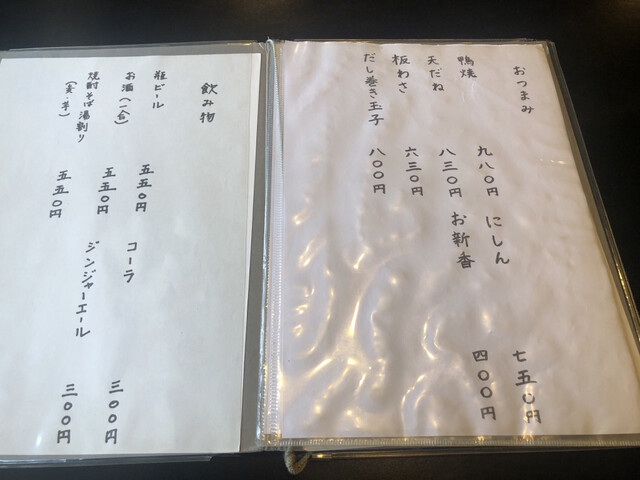 おつまみ
鴨焼 九八〇円
天だね 八三〇円
板わさ 六三〇円
だし巻き玉子 八〇〇円
にしん 七五〇円
お新香 四〇〇円
飲み物
瓶ビール 五五〇円
お酒(一合) 五五〇円
焼酎そば湯割り
(麦・芋) 五五〇円
コーラ 三〇〇円
ジンジャーエール 三〇〇円